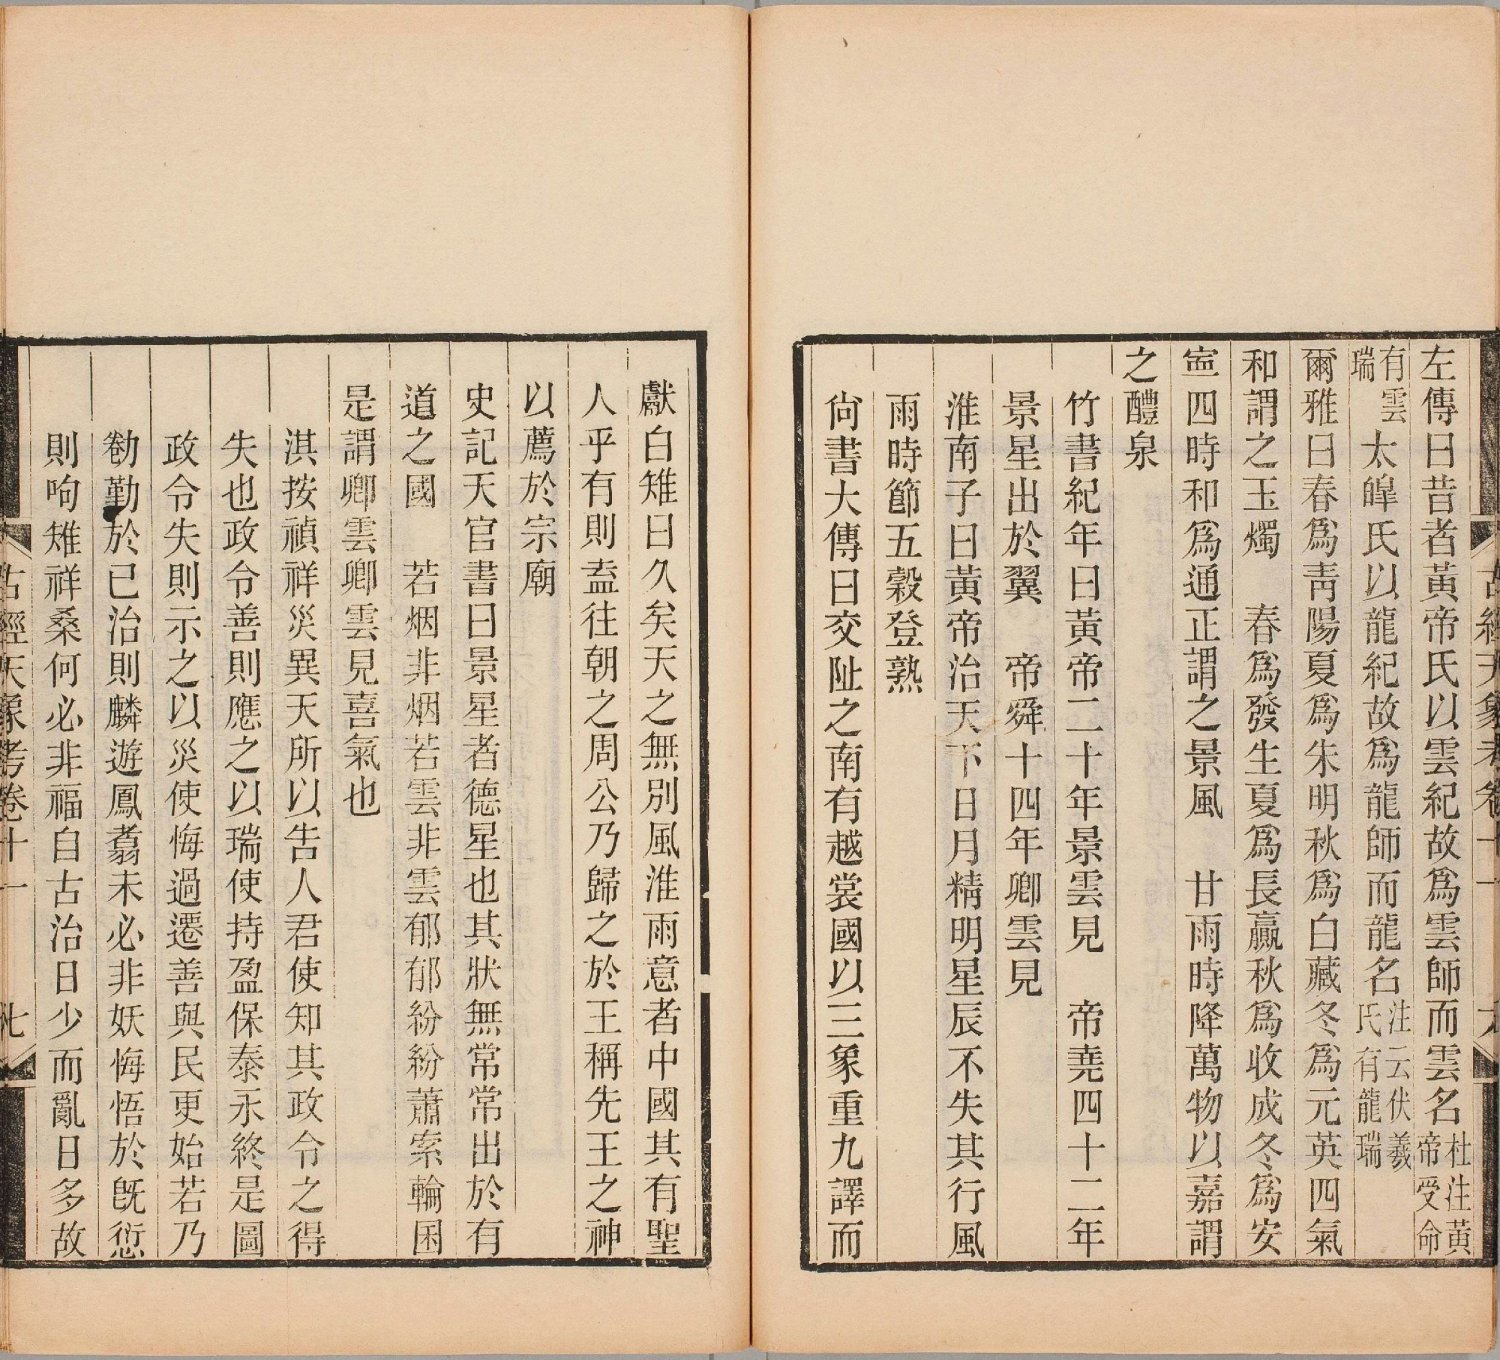 左傳曰昔者黃帝氏以雲紀故爲雲師而雲名杜注黃帝受命
有雲瑞太皥氏以龍紀故爲龍師而龍名注云伏羲氏有龍瑞
爾雅曰春爲靑陽夏爲朱明秋爲白藏冬爲元英四氣
和謂之玉燭　春爲發生夏爲長贏秋爲收成冬爲安
寍四時和爲通正謂之景風　甘雨時降萬物以嘉謂
之醴泉
竹書紀年曰黃帝二十年景雲見　帝堯四十二年
景星出於翼　帝舜十四年卿雲見
淮南子曰黃帝治天下日月精明星辰不失其行風
雨時節五穀登熟
尙書大傳曰交阯之南有越裳國以三象重九譯而
古經天象考卷十一　六
獻白雉曰久矣天之無別風淮雨意者中國其有聖
人乎有則盍往朝之周公乃歸之於王稱先王之神
以薦於宗廟
史記天官書曰景星者德星也其狀無常常出於有
道之國　若烟非烟若雲非雲郁郁紛紛蕭索輪囷
是謂卿雲卿雲見喜氣也
淇按禎祥災異天所以告人君使知其政令之得
失也政令善則應之以瑞使持盈保泰永終是圖
政令失則示之以災使悔過遷善與民更始若乃
勌勤於已治則麟遊鳳翥未必非妖悔悟於旣愆
則呴雉祥桑何必非福自古治日少而亂日多故
古經天象考卷十一　七